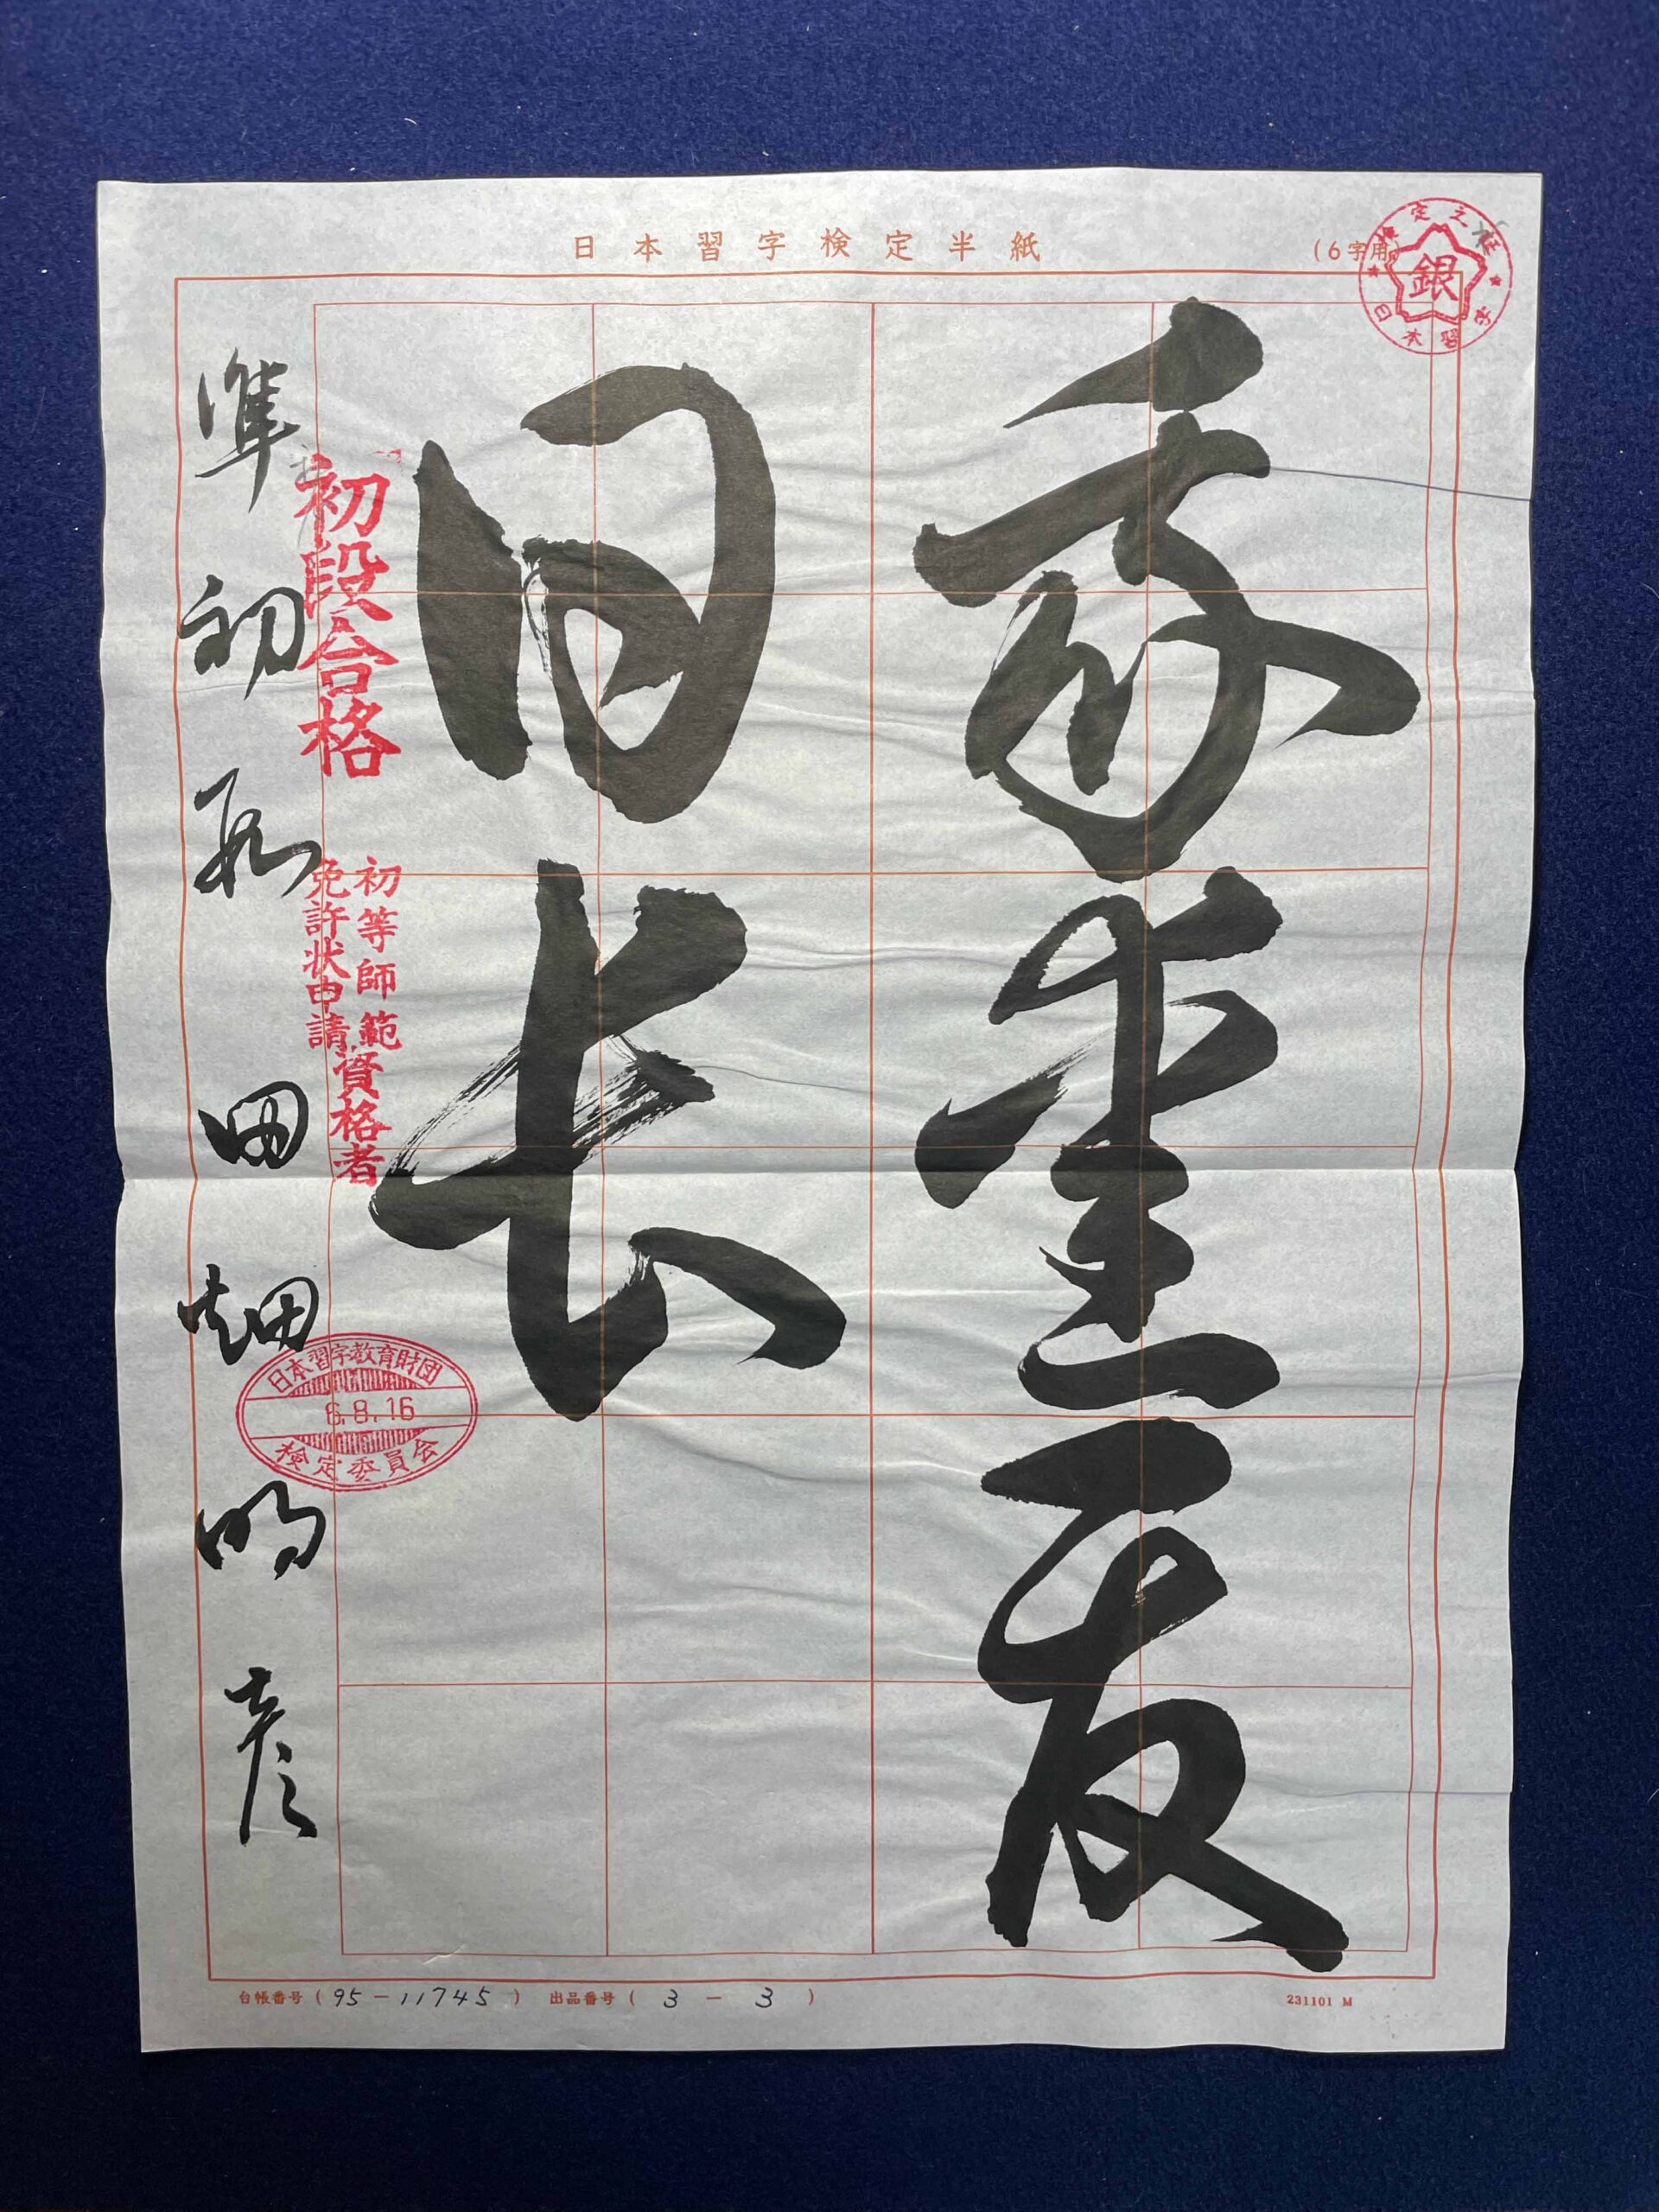 日本習字検定半紙
(6字用)
検定之証
銀
日本習字
夏
日長
準初段 田畑明彦
初段合格
初等師範
免許状申請
資格者
日本習字教育財団
6.8.16
検定委員会
台帳番号(95-11745) 出品番号(3-3)
231101 M